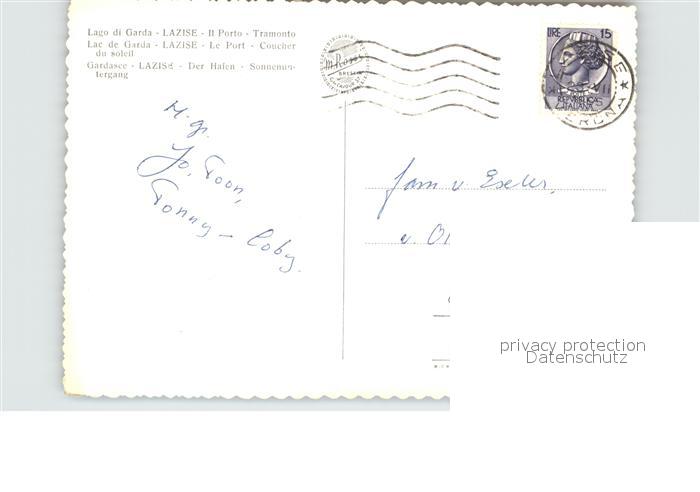 Lago di Garda - LAZISE - Il Porto - Tramonto
Lac de Garda - LAZISE - Le Port - Coucher
du soleil
Gardasee - LAZISE - Der Hafen - Sonnenun-
tergang
LIRE 15
REPVBBLICA
ITALIANA
BRES
M. gr.
Jo, Toon,
Tonny - Coby.
Fam v. Esch
v. O
privacy protection
Datenschutz